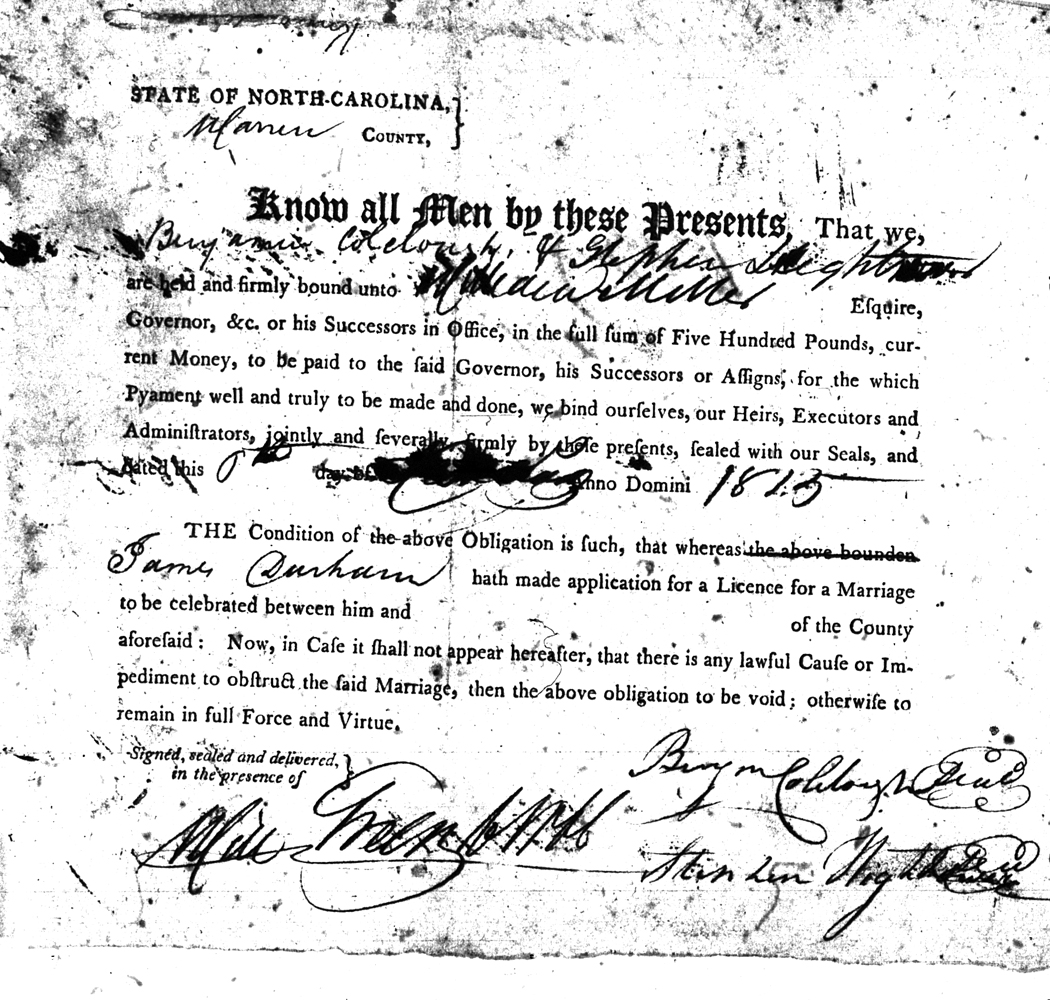 STATE OF NORTH-CAROLINA,
Warren COUNTY,
Know all Men by these Presents, That we,
Benjamin Colclough & Stephen
are held and firmly bound unto William Miller Eſquire,
Governor, &c. or his Succeſſors in Office, in the full ſum of Five Hundred Pounds, cur-
rent Money, to be paid to the ſaid Governor, his Succeſſors or Aſſigns, for the which
Pyament well and truly to be made and done, we bind ourſelves, our Heirs, Executors and
Adminiſtrators, jointly and ſeverally, firmly by theſe preſents, ſealed with our Seals, and
dated this day of Anno Domini 1815
THE Condition of the above Obligation is ſuch, that whereas the above bounden
James Durham hath made application for a Licence for a Marriage
to be celebrated between him and of the County
aforeſaid: Now, in Caſe it ſhall not appear hereafter, that there is any lawful Cauſe or Im-
pediment to obſtruct the ſaid Marriage, then the above obligation to be void; otherwiſe to
remain in full Force and Virtue.
Signed, sealed and delivered,
in the presence of
Benjn Colclough Seal
Will Green
Stephen Seal